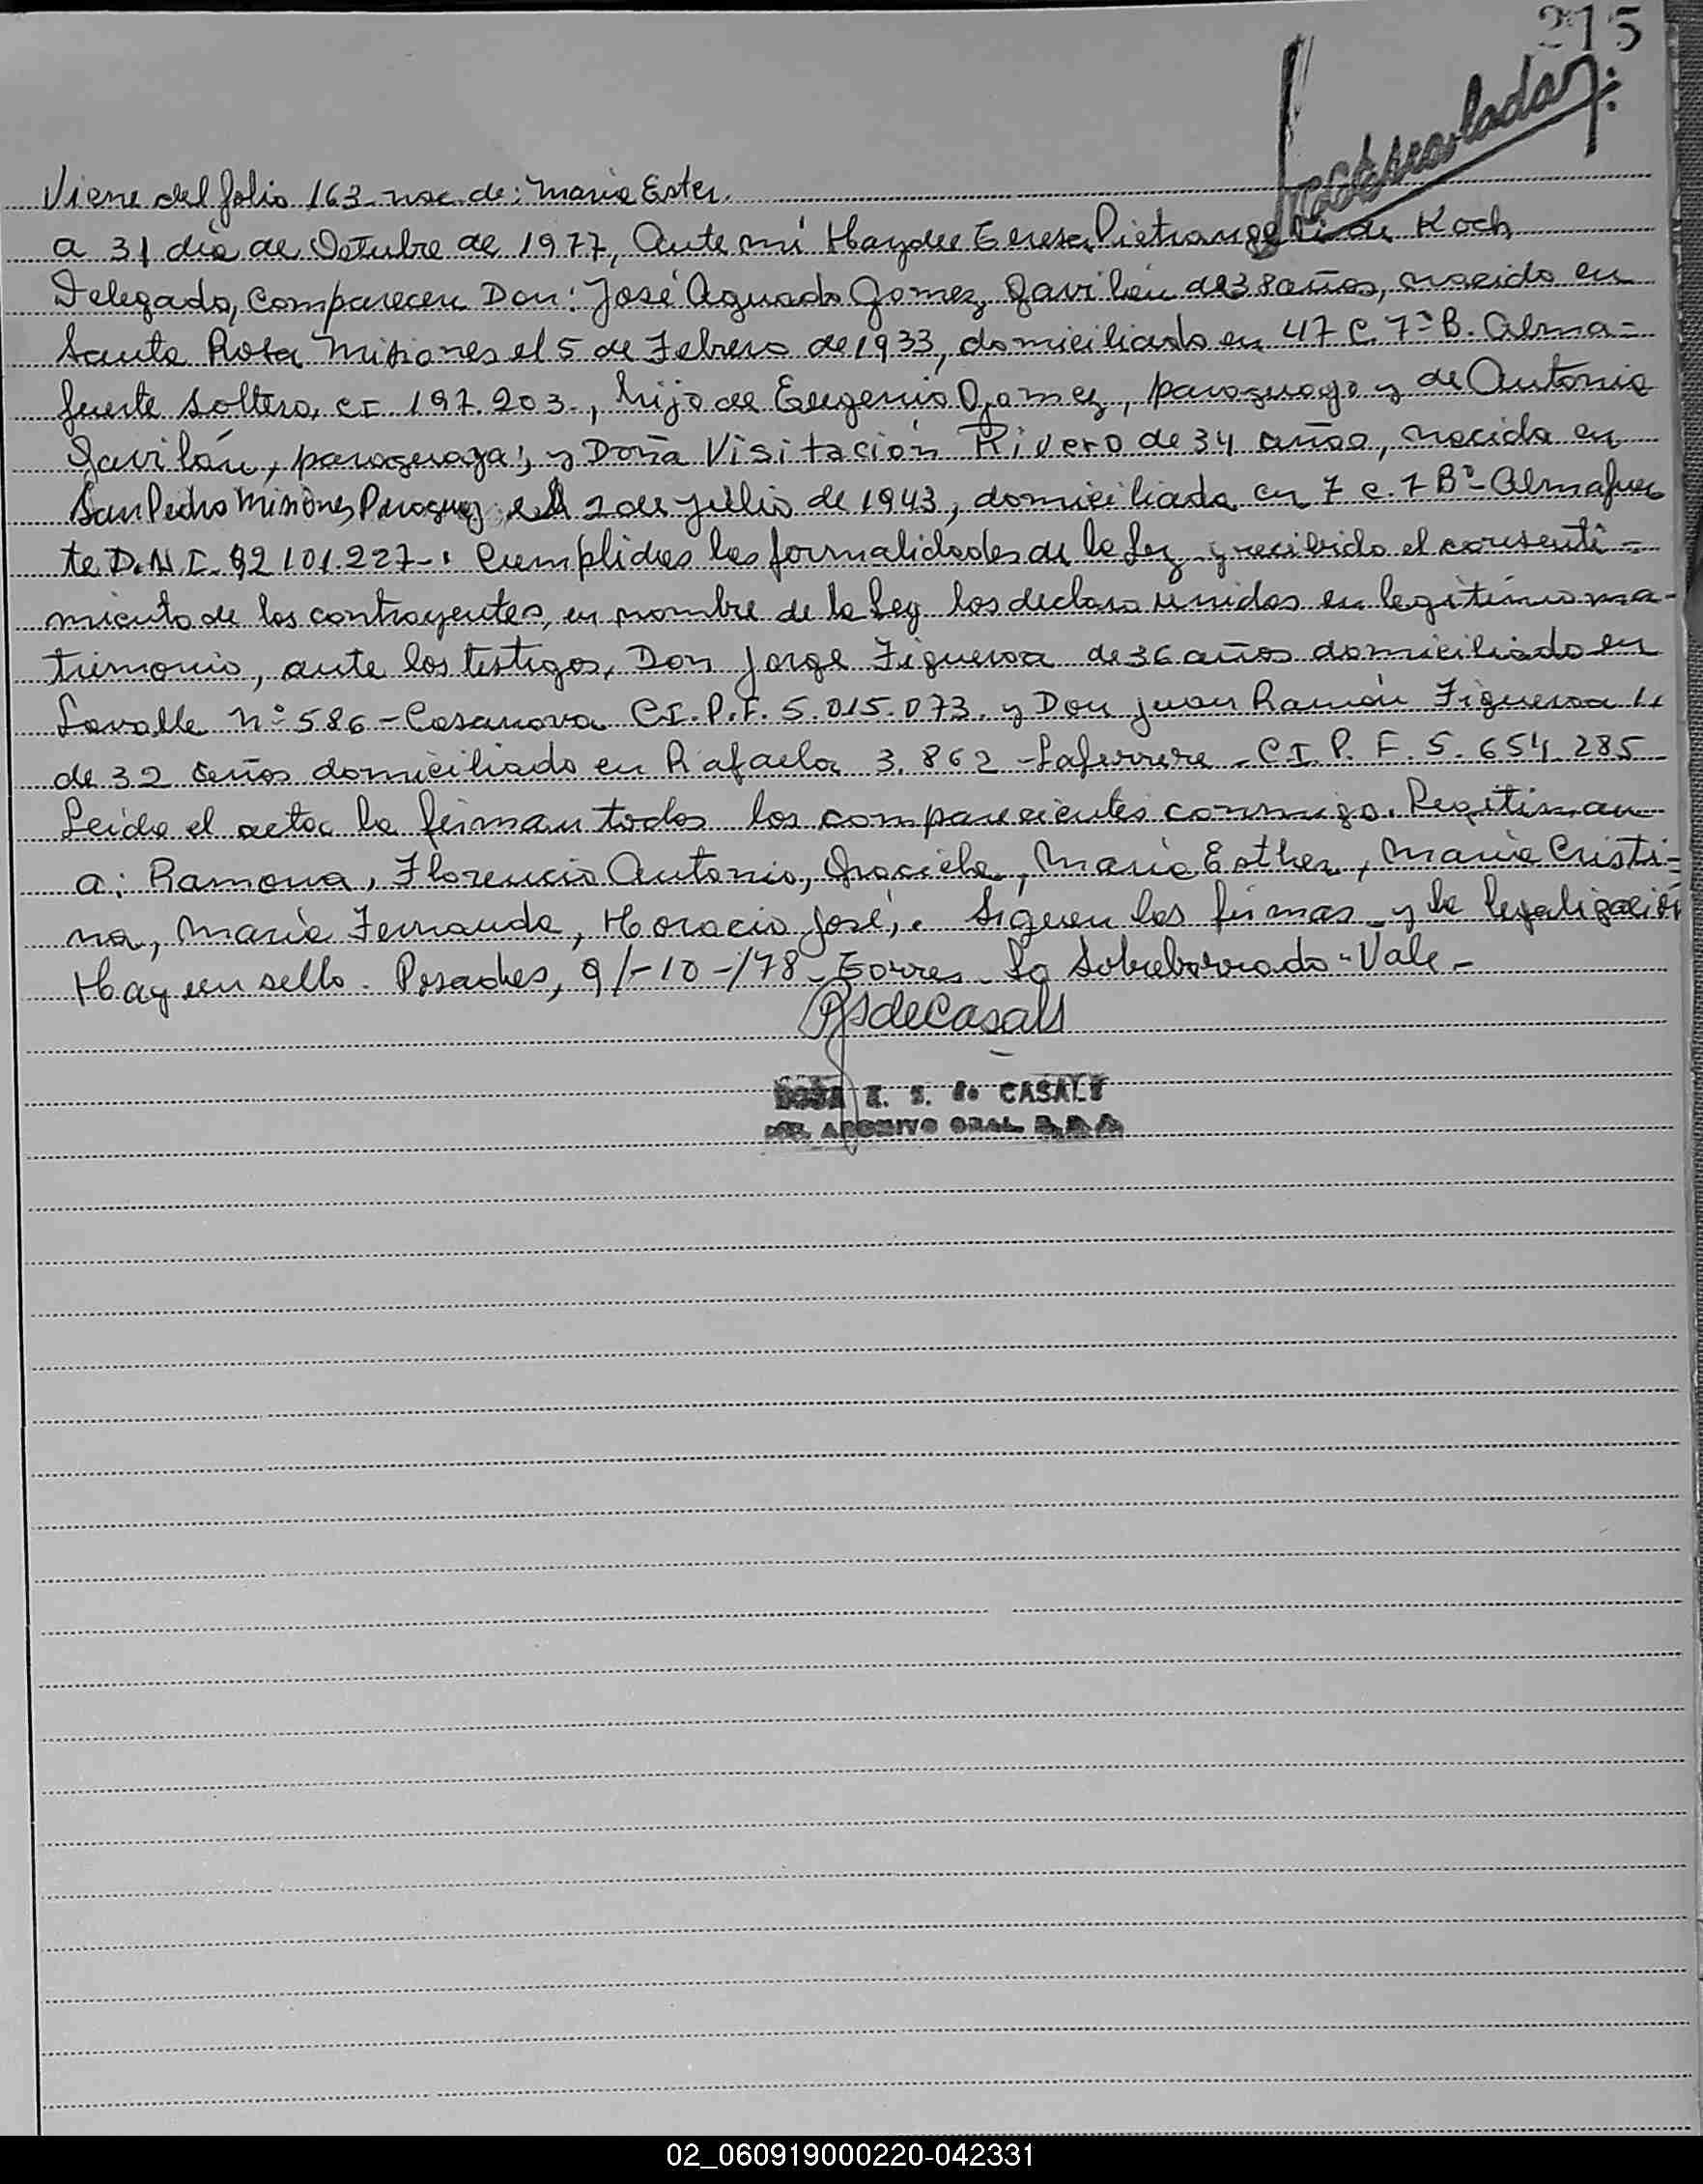 215
Viene del folio 163-nac. de: Maria Ester.
a 31 dia de Octubre de 1977, Ante mi Haydee Teresa Pietrangeli de Koch
Delegado, comparecen Don: José Aguado Gomez Gavilán de 38 años, nacido en
Santa Rosa Misiones el 5 de Febrero de 1933, domiciliado en 47 C. 7º B. Alma=
fuerte soltero, CI 197.203., hijo de Eugenio Gomez, paraguayo y de Antonia
Gavilán, paraguaya; y Doña Visitación Rivero de 34 años, nacida en
San Pedro Misiones Paraguay el 2 de Julio de 1943, domiciliada en 7 c. 7 Bº- Almafuer
te D.N.I. 92 101.227-. Cumplidas las formalidades de la Ley y recibido el consenti=
miento de los contrayentes, en nombre de la Ley los declaro unidos en legitimo ma-
trimonio, ante los testigos, Don Jorge Figueroa de 36 años domiciliado en
Lavalle nº 586-Casanova CI.P.F. 5.015.073. y Don Juan Ramón Figueroa
de 32 años domiciliado en Rafaela 3.862 -Laferrere- C I. P. F. 5. 654.285
Leida el acta la firman todos los comparecientes conmigo. Legitiman
a: Ramona, Florencio Antonio, Graciela, Maria Esther, Maria Cristi=
na, Maria Fernanda, Horacio José,. Siguen las firmas y la legalización
Hay un sello. Posadas, 9/-10-/78- Torres- Lo Sobreborrado-Vale-
RSdeCasals
ROSA E. S. de CASALS
ARCHIVO GRAL.
02_060919000220-042331